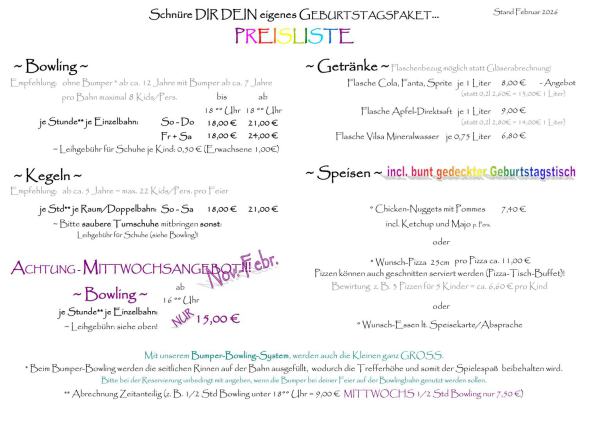 Schnüre DIR DEIN eigenes GEBURTSTAGSPAKET...
Stand Februar 2026
PREISLISTE
~ Bowling ~
Empfehlung: ohne Bumper * ab ca. 12 Jahre mit Bumper ab ca. 7 Jahre
pro Bahn maximal 8 Kids/Pers.
bis ab
18 °° Uhr 18 °° Uhr
je Stunde** je Einzelbahn: So - Do 18,00 € 21,00 €
Fr + Sa 18,00 € 24,00 €
~ Leihgebühr für Schuhe je Kind: 0,50 € (Erwachsene 1,00€)
~ Kegeln ~
Empfehlung: ab ca. 5 Jahre ~ max. 22 Kids/Pers. pro Feier
je Std** je Raum/Doppelbahn: So - Sa 18,00 € 21,00 €
~ Bitte saubere Turnschuhe mitbringen sonst:
Leihgebühr für Schuhe (siehe Bowling)!
ACHTUNG - MITTWOCHSANGEBOT!!!
Nov.-Febr.
~ Bowling ~
ab
16 °° Uhr
je Stunde** je Einzelbahn:
NUR 15,00 €
~ Leihgebühr: siehe oben!
~ Getränke ~ Flaschenbezug möglich statt Gläserabrechnung!
Flasche Cola, Fanta, Sprite je 1 Liter 8,00 € - Angebot
(statt 0,2l 2,60€ = 13,00€ 1 Liter)
Flasche Apfel-Direktsaft je 1 Liter 9,00 €
(statt 0,2l 2,80€ = 14,00€ 1 Liter)
Flasche Vilsa Mineralwasser je 0,75 Liter 6,80 €
~ Speisen ~ incl. bunt gedeckter Geburtstagstisch
* Chicken-Nuggets mit Pommes 7,40 €
incl. Ketchup und Majo p. Pers.
oder
* Wunsch-Pizza 25cm pro Pizza ca. 11,00 €
Pizzen können auch geschnitten serviert werden (Pizza-Tisch-Buffet)!
Bewirtung z. B. 3 Pizzen für 5 Kinder = ca. 6,60 € pro Kind
oder
* Wunsch-Essen lt. Speisekarte/Absprache
Mit unserem Bumper-Bowling-System, werden auch die Kleinen ganz GROSS.
* Beim Bumper-Bowling werden die seitlichen Rinnen auf der Bahn ausgefüllt, wodurch die Trefferhöhe und somit der Spielespaß beibehalten wird.
Bitte bei der Reservierung unbedingt mit angeben, wenn die Bumper bei deiner Feier auf der Bowlingbahn genutzt werden sollen.
** Abrechnung Zeitanteilig (z. B. 1/2 Std Bowling unter 18°° Uhr = 9,00 € MITTWOCHS 1/2 Std Bowling nur 7,50 €)